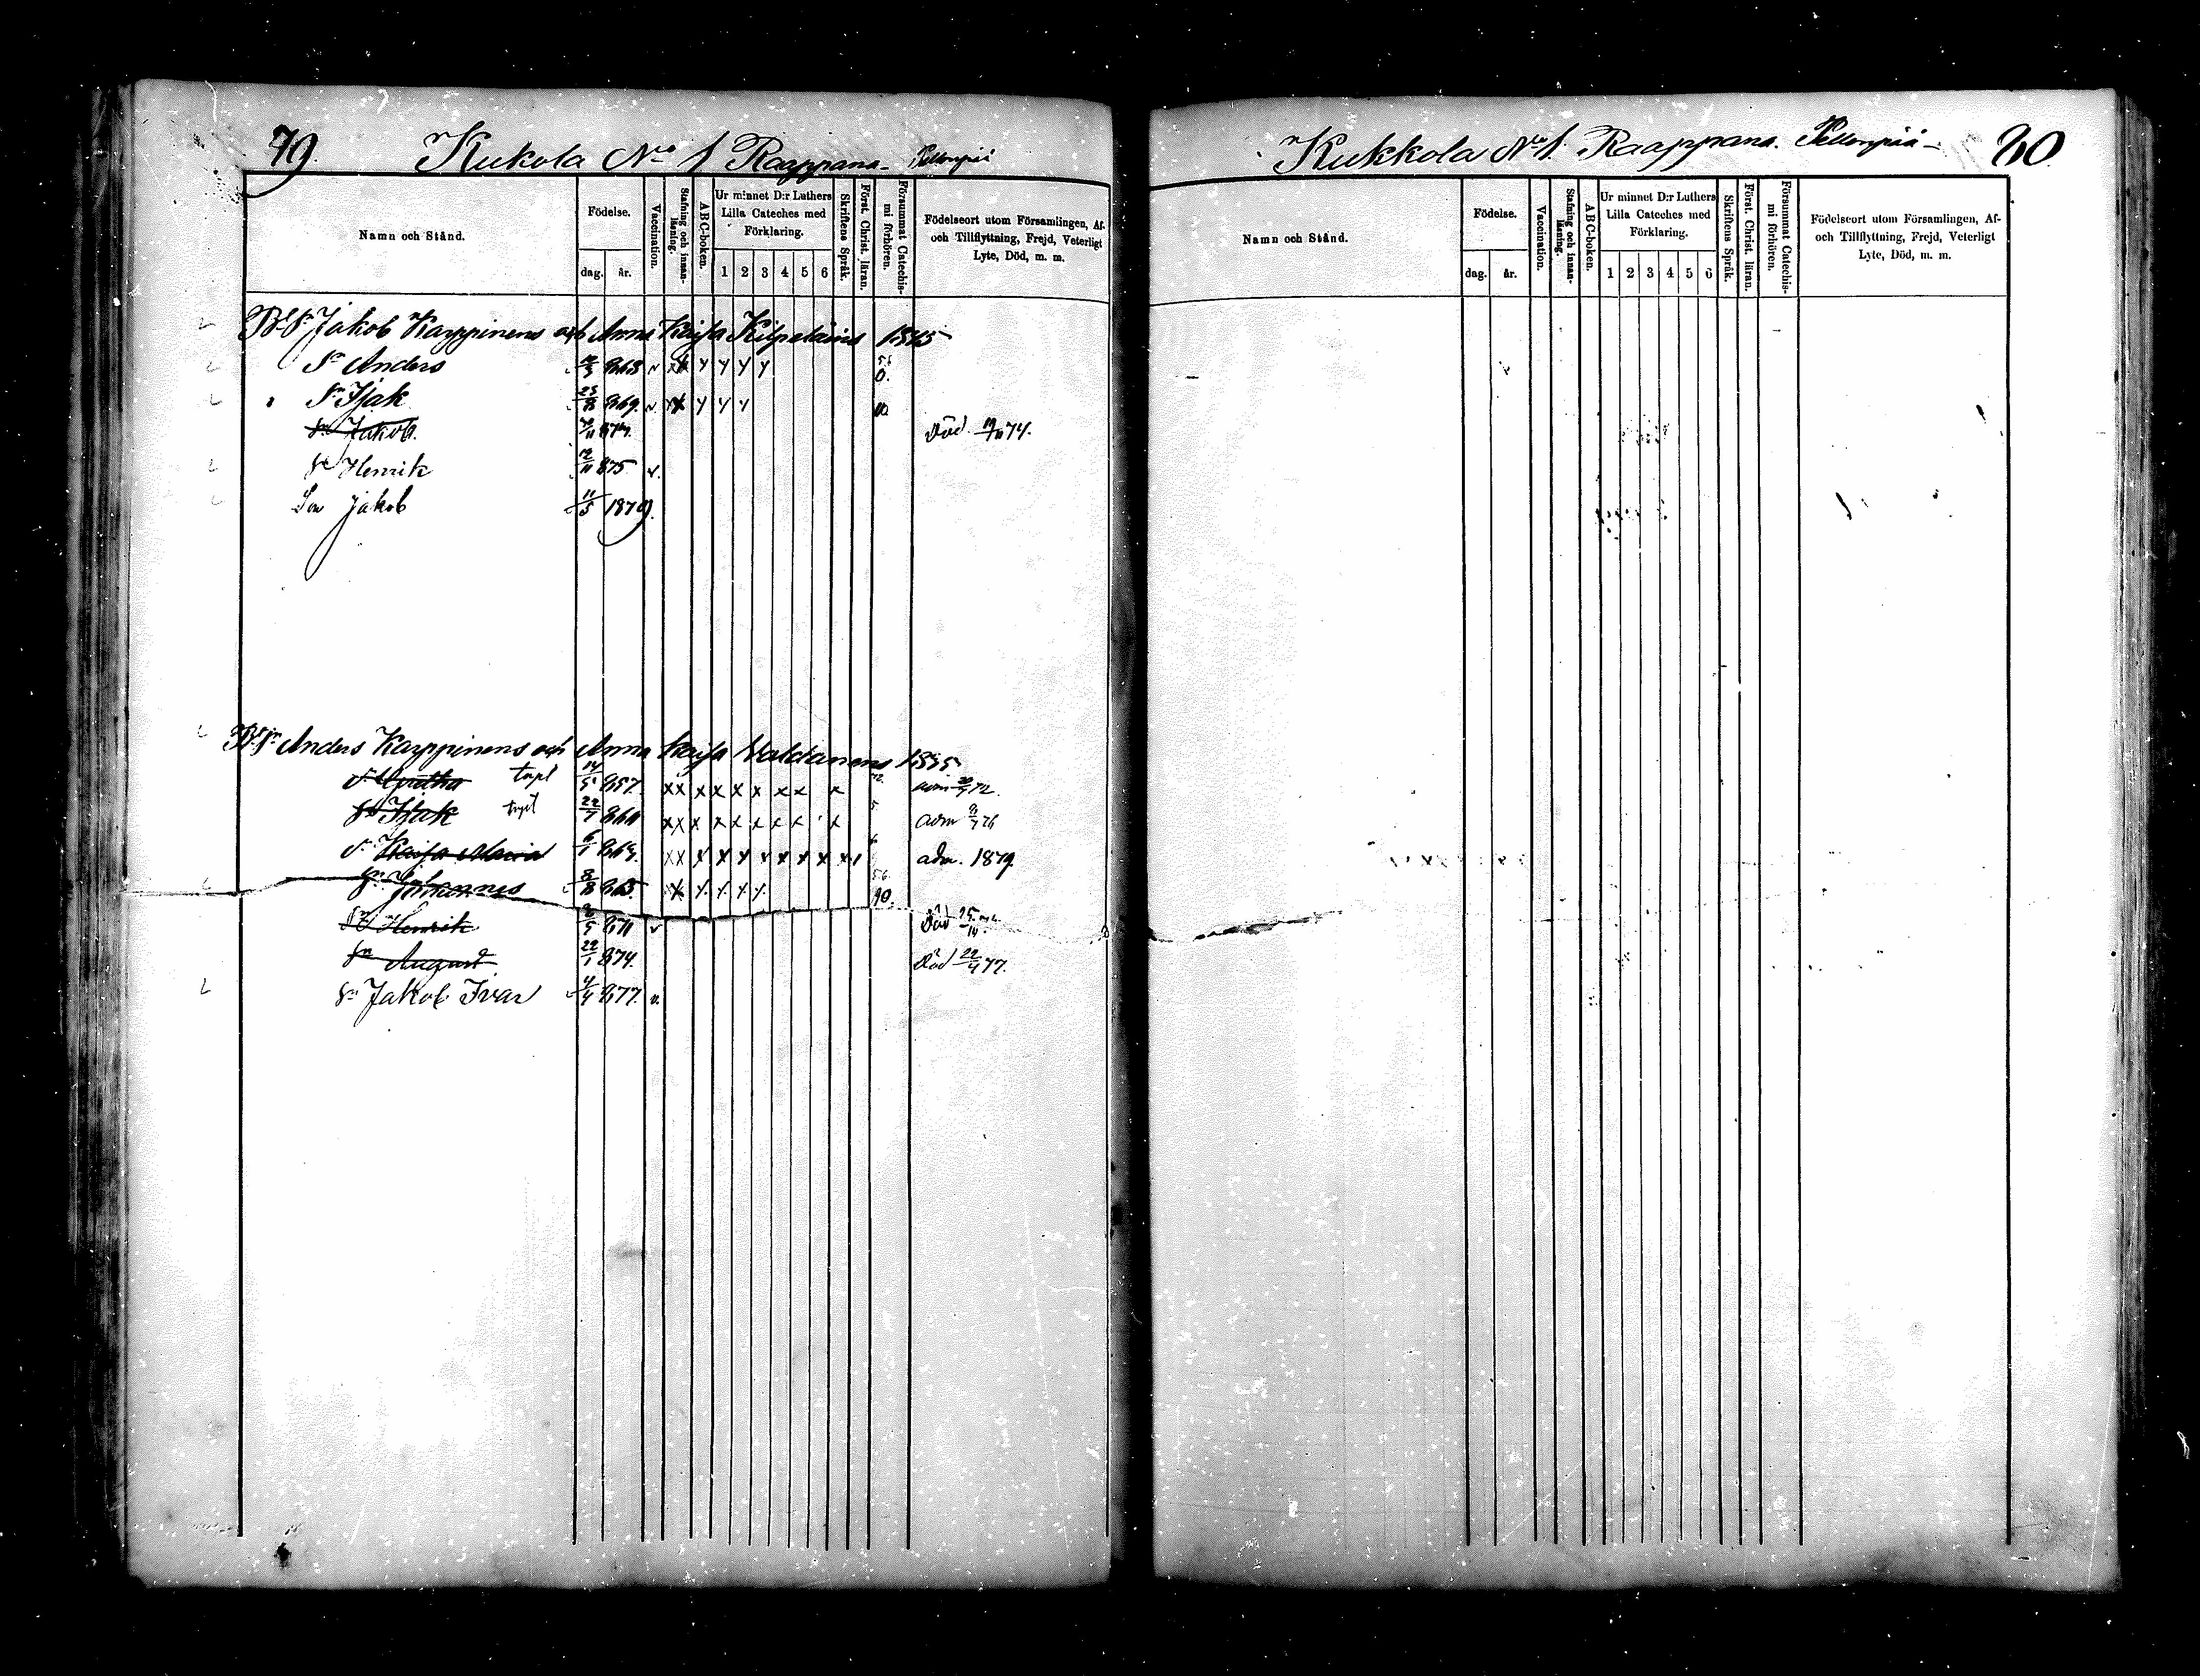 79. Kukola No 1 Raappana. Pellonpää
Namn och Stånd.
Födelse.
dag. år.
Vaccination.
Stafning och innanläsning.
ABC-boken.
Ur minnet D:r Luthers Lilla Cateches med Förklaring.
1 2 3 4 5 6
Skriftens Språk.
Först. Christ. läran.
Försummat Catechismi förhören.
Födelseort utom Församlingen, Af- och Tillflyttning, Frejd, Veterligt Lyte, Död, m. m.
Jakob Karppinens och Anna Kaisa Kilpeläins 1865
Sn Anders 868
Sn Isak 25/8 869.
Sn Jakob. 874. Död 74.
Sn Henrik 12/11 875
Son Jakob 11/5 1879.
Anders Karppinens och Anna Kaisa 1835
Gretha 14/5 857. 72.
Sn Isak 22/7 860 adm 76
Kaisa Maria 6/1 863. adm. 1879
Sn Johannes 8/8 865. 90.
Sn Henrik 871 Död
Sn August 22/1 874. Död 22/4 77.
Sn Jakob Ivar 4/4 877.
Kukkola No 1. Raappana. Pellonpää 80
Namn och Stånd.
Födelse.
dag. år.
Vaccination.
Stafning och innanläsning.
ABC-boken.
Ur minnet D:r Luthers Lilla Cateches med Förklaring.
1 2 3 4 5 6
Skriftens Språk.
Först. Christ. läran.
Försummat Catechismi förhören.
Födelseort utom Församlingen, Af- och Tillflyttning, Frejd, Veterligt Lyte, Död, m. m.